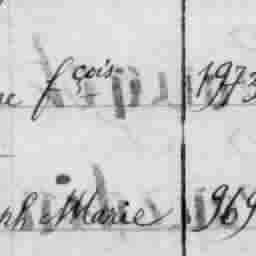 ne fçois 1973
ph Marie 969